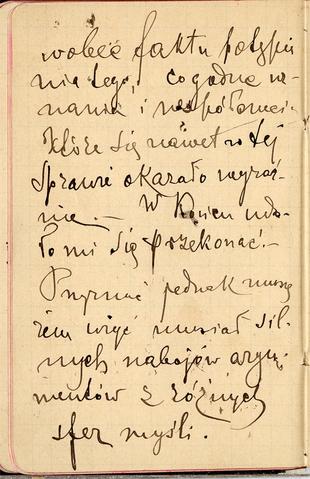 wobec faktu potępie
nia tego, co godne u-
znania i współczucia
które się nawet w tej
sprawie okazało wyraź-
nie. — W końcu uda-
ło mi się przekonać. —
Przyznać jednak muszę
żem użyć musiał sil-
nych nabojów argu-
mentów z różnych
sfer myśli.